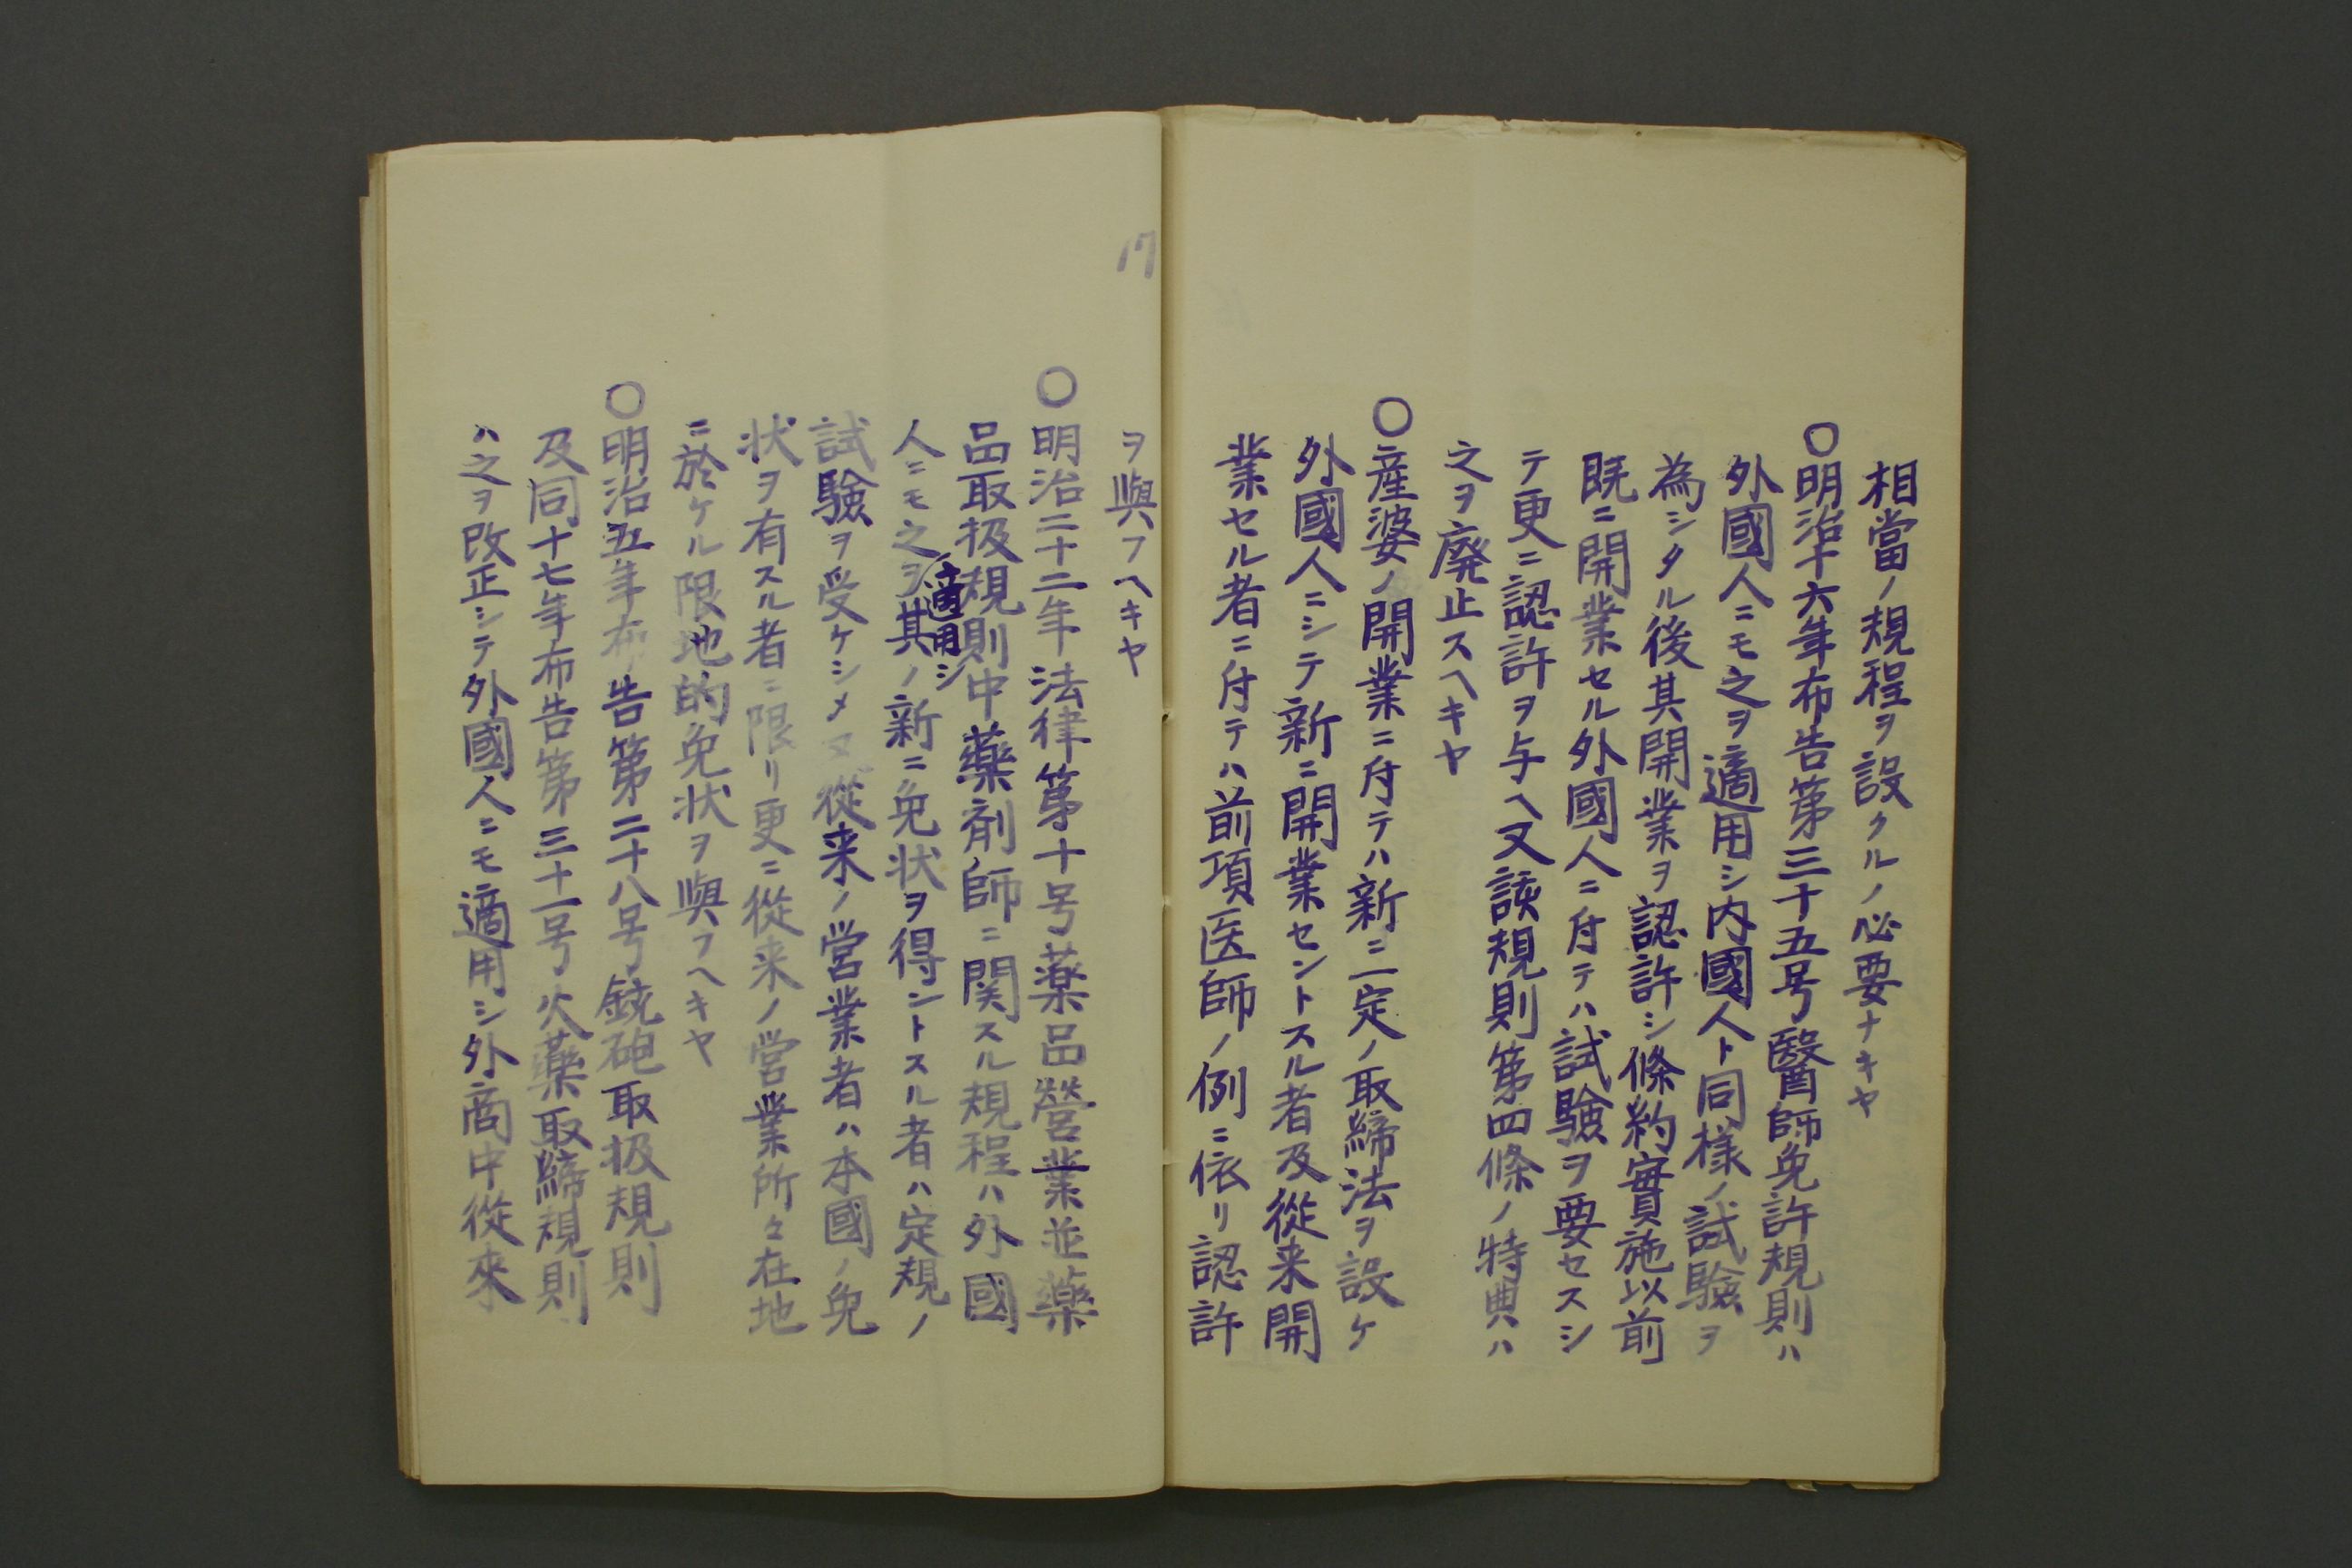 相當ノ規程ヲ設クルノ必要ナキヤ
〇明治十六年布告第三十五号醫師免許規則ハ
外國人ニモ之ヲ適用シ内國人ト同様ノ試驗ヲ
為シタル後其開業ヲ認許シ條約實施以前
既ニ開業セル外國人ニ付テハ試驗ヲ要セスシ
テ更ニ認許ヲ与ヘ又該規則第四條ノ特典ハ
之ヲ廃止スヘキヤ
〇産婆ノ開業ニ付テハ新ニ一定ノ取締法ヲ設ケ
外國人ニシテ新ニ開業セントスル者及從来開
業セル者ニ付テハ前項医師ノ例ニ依リ認許
17
ヲ與フヘキヤ
〇明治二十二年法律第十号薬品營業並藥
品取扱規則中藥剤師ニ関スル規程ハ外國
人ニモ之ヲ適用シ其ノ新ニ免状ヲ得ントスル者ハ定規ノ
試驗ヲ受ケシメ又從来ノ営業者ハ本國ノ免
状ヲ有スル者ニ限リ更ニ從来ノ営業所々在地
ニ於ケル限地的免状ヲ與フヘキヤ
〇明治五年布告第二十八号銃砲取扱規則
及同十七年布告第三十一号火藥取締規則
ハ之ヲ改正シテ外國人ニモ適用シ外商中從來